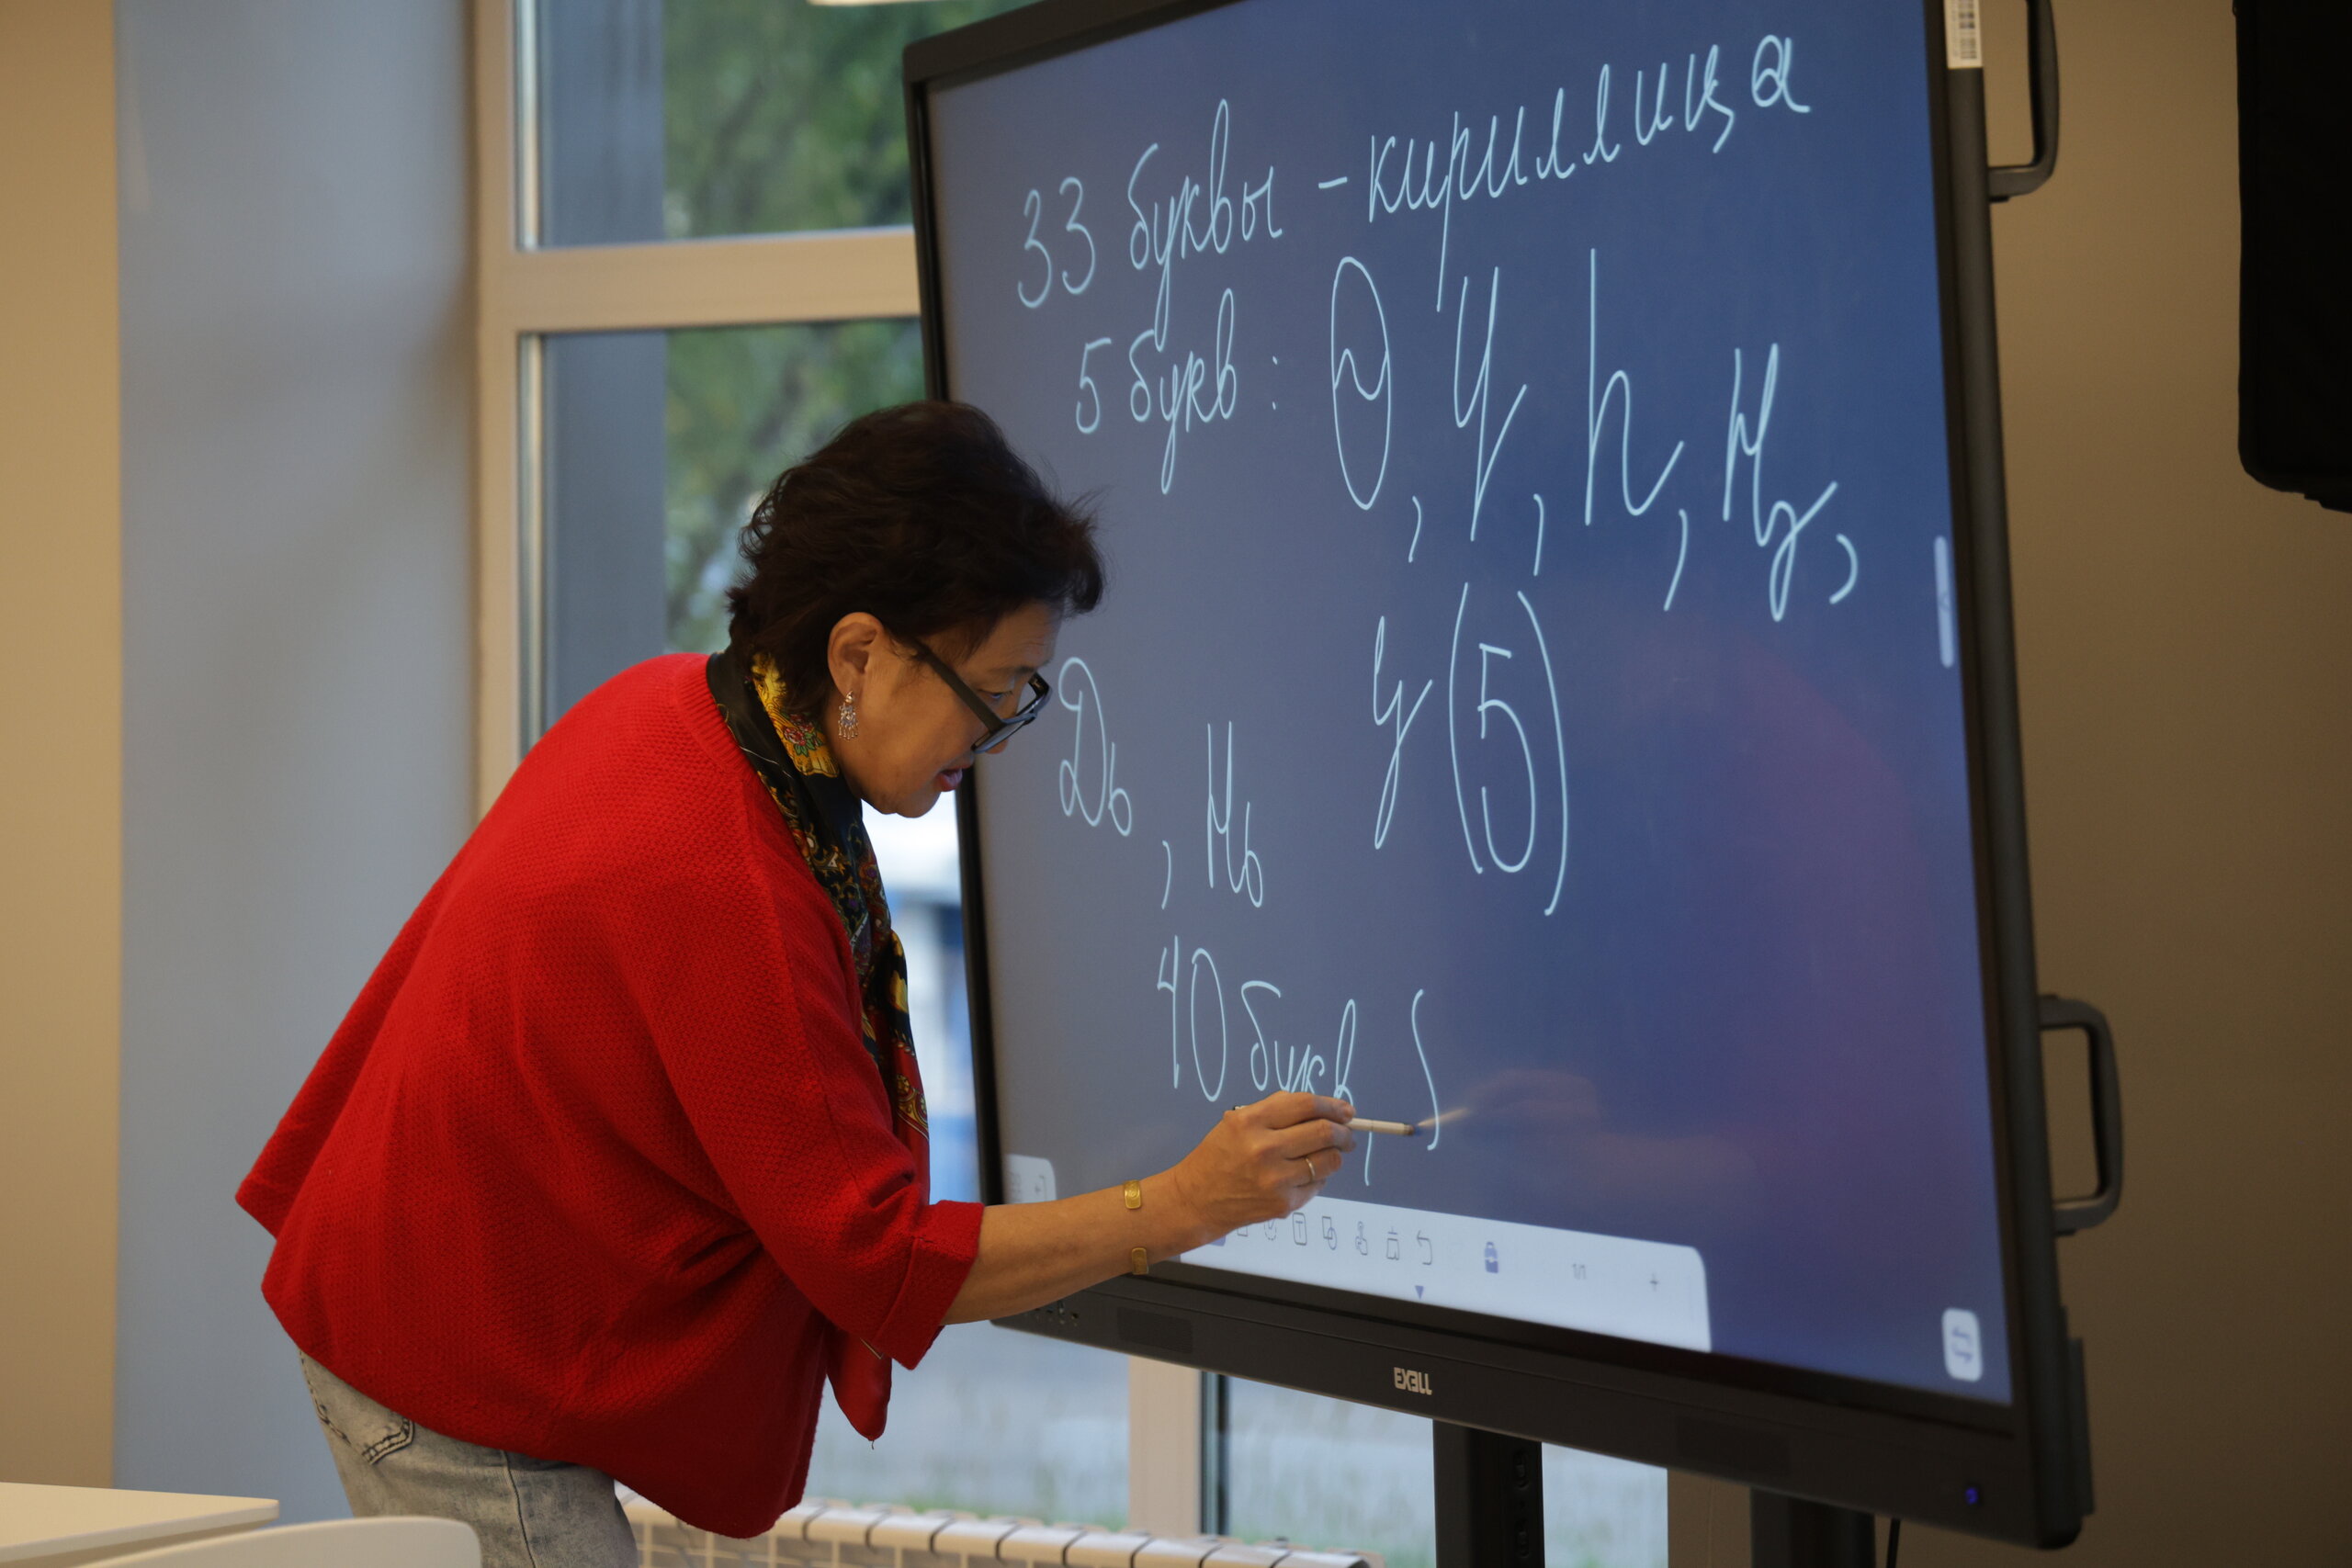 33 буквы - кириллица
5 букв: Ө, Ү, һ, Ҥ,
у (5)
Дь, Нь
40 букв,
EXELL